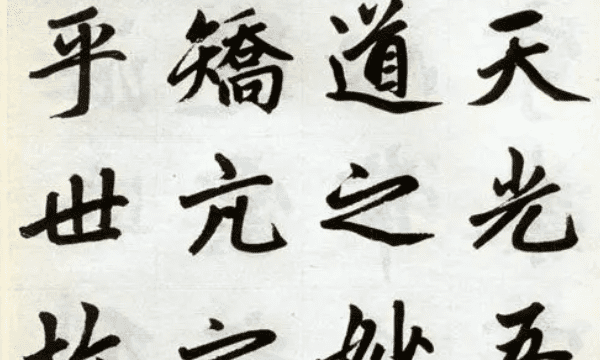 天光
道之妙
矯亢
乎世